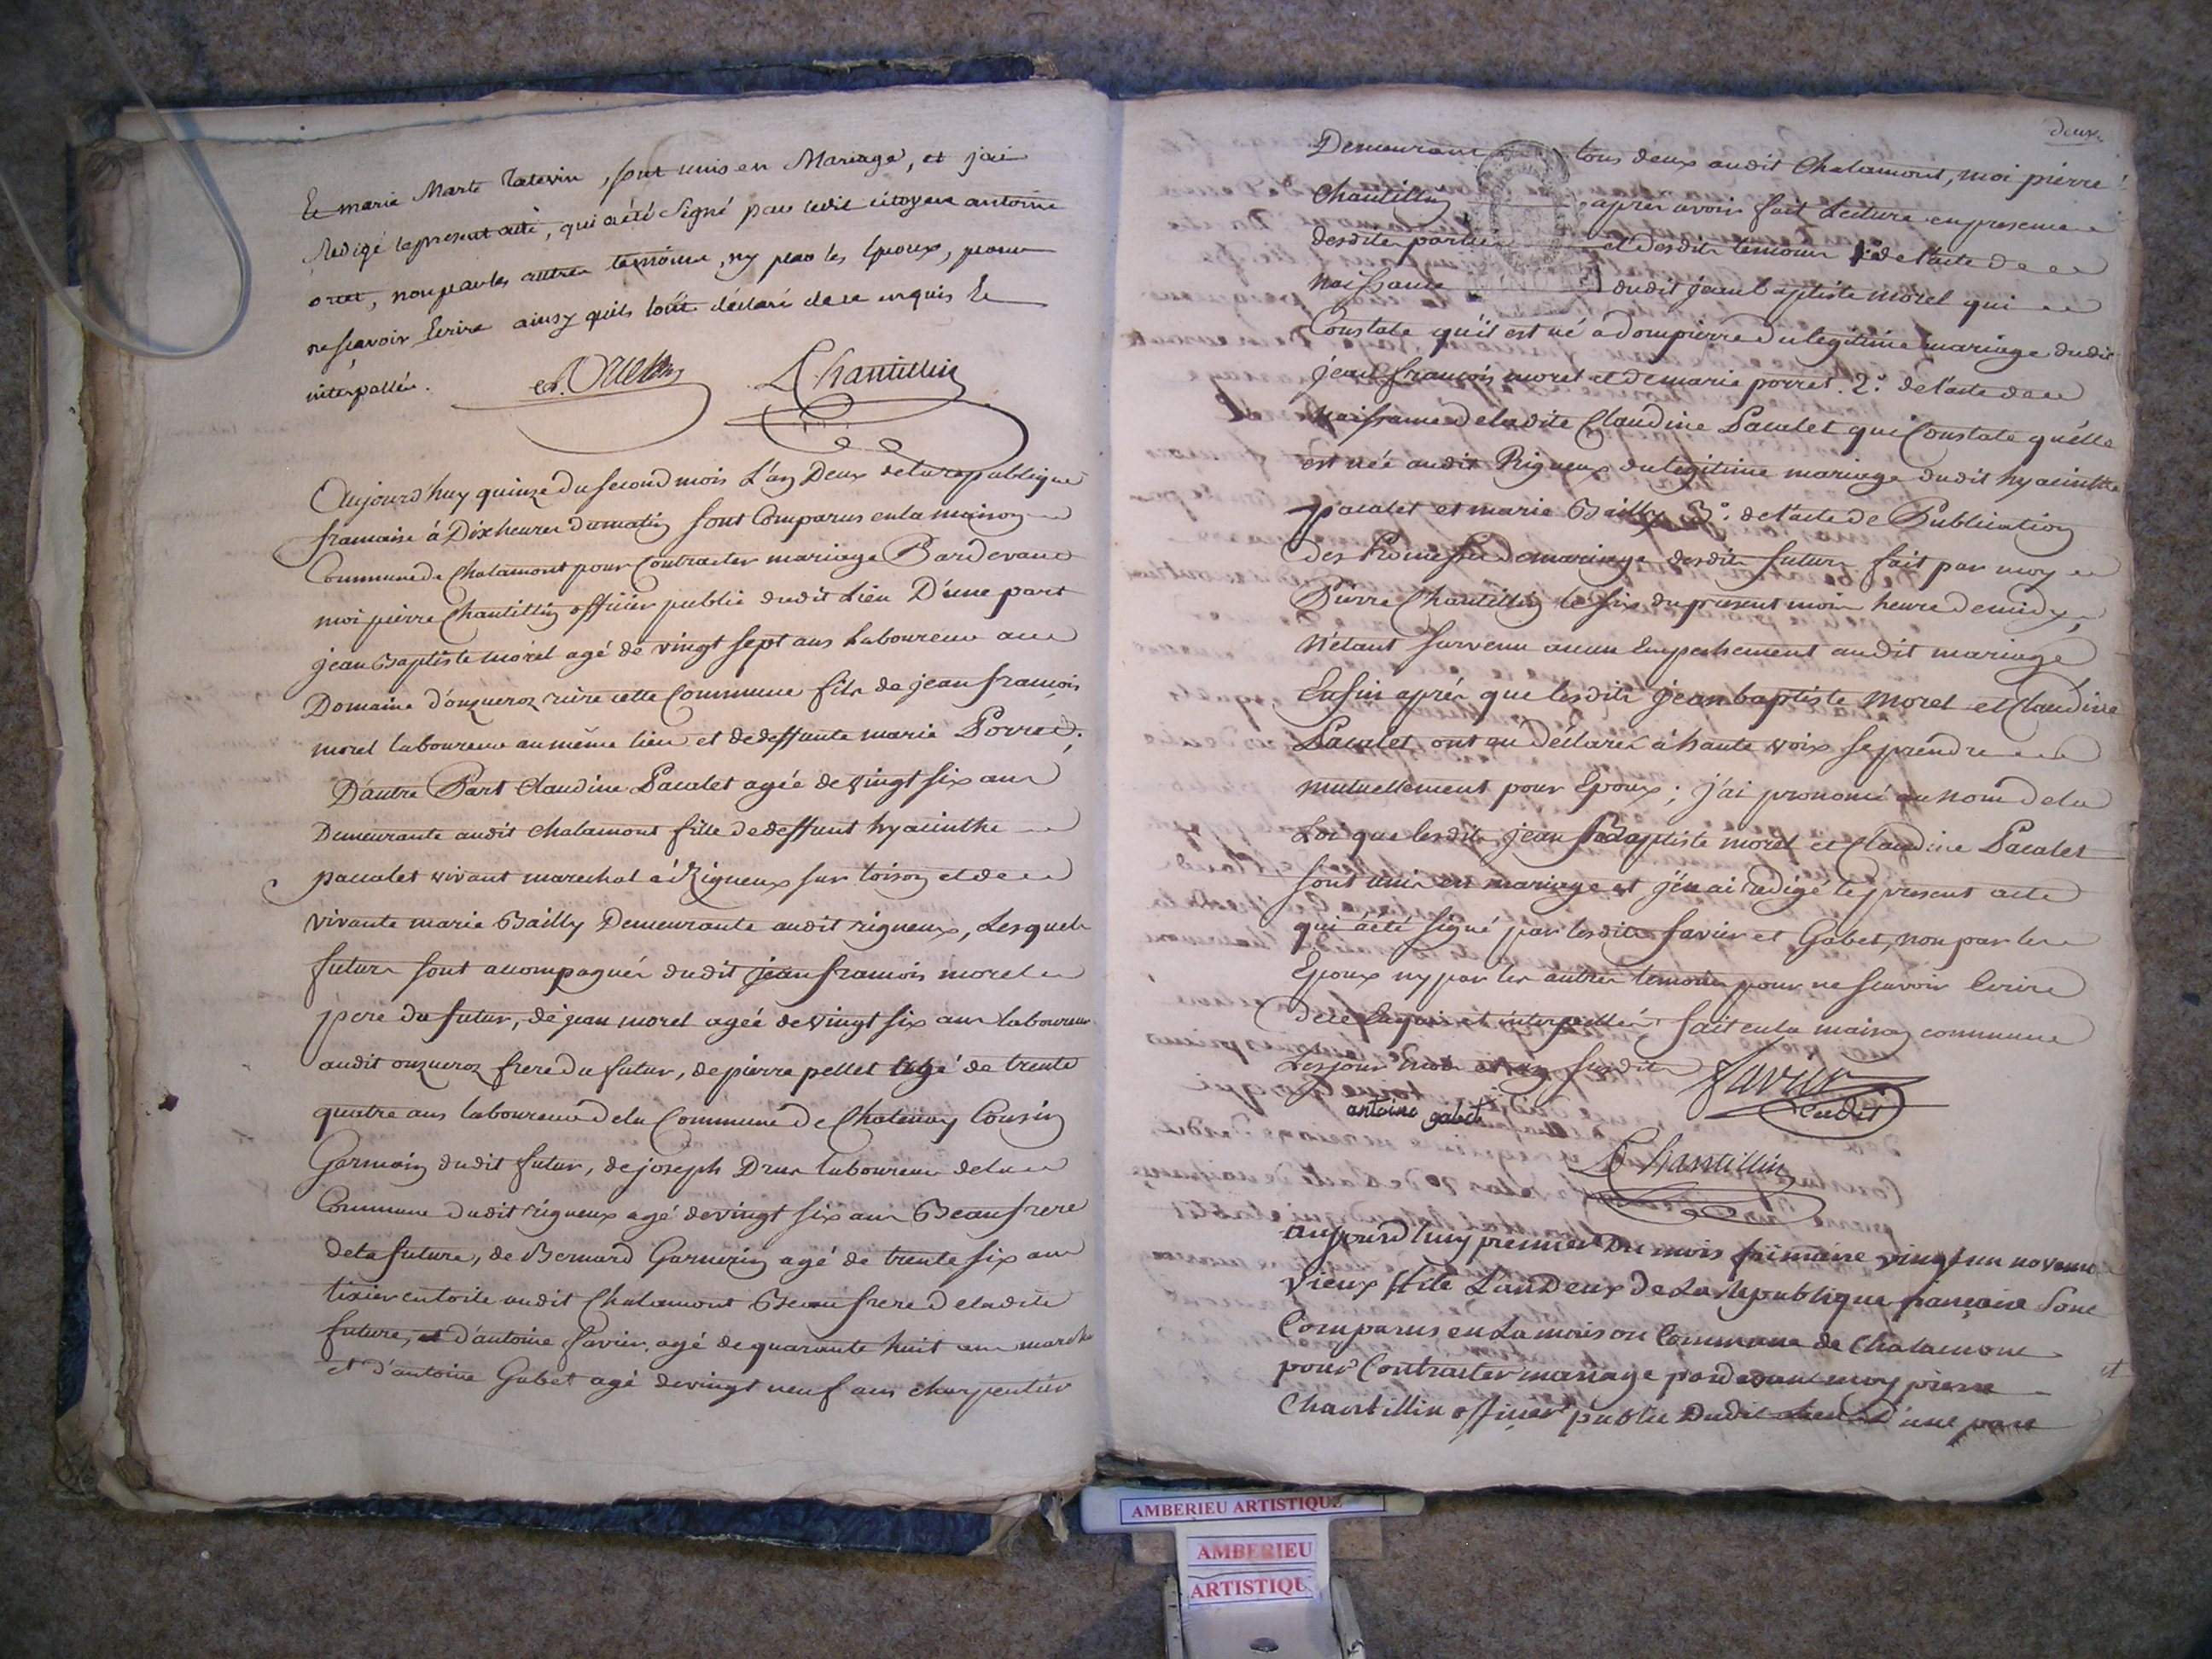 Et marie Marte Tatevin, sont unis en Mariage, et jai
Redigé le present acte, qui a été Signé par ledit citoyen antoine
orcet, non par les autres temoins, ny par les Epoux, pour
ne scavoir Ecrire ainsy quils lont déclaré de ce enquis Et
interpellés.
Chantillin
Aujourd'huy quinze du second mois L'an Deux de la republique
francaise à Dix heures du matin sont Comparus en la maison
Commune de Chalamont pour Contracter mariage Pardevant
moi pierre Chantillin officier public dudit Lieu D'une part
jean Baptiste morel agé de vingt sept ans Laboureur au
Domaine d'onzueroz riere cette Commune fils de jean francois
morel laboureur au même lieu et de deffunte marie Porret;
D'autre Part Claudine Pacalet agée de vingt six ans
Demeurante audit chalamont fille de deffunt hyacinthe
pacalet vivant marechal à Rigneux sur toison et de
vivante marie Bailly Demeurante audit rigneux, Lesquels
futurs sont accompagnés dudit jean francois morel
pere du futur, de jean morel ageé de vingt six ans laboureur
audit onzueroz frere du futur, de pierre pellet agé de trente
quatre ans laboureur de la Commune de Chatenay Cousin
Germain dudit futur, de joseph Drux laboureur de la
Commune dudit rigneux agé de vingt six ans Beaufrere
de la future, de Bernard Garnerin agé de trente six ans
tixier en toile audit Chalamont Beaufrere de ladite
future, et d'antoine favier, agé de quarante huit ans march
et d'antoine Gabet agé de vingt neuf ans charpentier
deux
Demeurant tous deux audit Chalamont, moi pierre
Chantillin apres avoir fait Lecture en presence
desdites parties et desdits temoins 1.º de l'acte de
Naissance dudit jean baptiste morel qui
Constate qu'il est né a dompierre du legitime mariage dudit
jean francois morel et de marie porret. 2.º de l'acte de
Naissance de ladite Claudine Pacalet qui Constate qu'elle
est née audit Rigneux du legitime mariage dudit hyacinthe
pacalet et marie Bailly 3.º de l'acte de Publication
des Promesses de mariage desdits futurs fait par moy
Pierre Chantillin le six du present mois heure de midy,
N'étant survenu aucun Empechement audit mariage
Enfin aprés que lesdits jean baptiste Morel et Claudine
Pacalet ont eu déclaré à haute voix se prendre
mutuellement pour Epoux; j'ai prononcé au nom de la
Loi que lesdits jean Baptiste morel et Claudine Pacalet
sont unis en mariage et j'en ai redigé le present acte
qui a été signé par lesdits favier et Gabet, non par les
Epoux ny par les autres temoins pour ne scavoir Ecrire
de ce Enquis et interpellés, fait en la maison commune
Les jour mois et an susdits
favier
cadet
antoine gabet
Chantillin
aujourd'huy premier Du mois frimaire vingt un novembre
vieux stile L'an Deux de La Republique française Sont
Comparus en La maison Commune de Chalamont
pour Contracter mariage pardevant moy pierre
et
Chantillin officier public Dudit Lieu D'une part
AMBERIEU ARTISTIQUE
AMBERIEU
ARTISTIQU